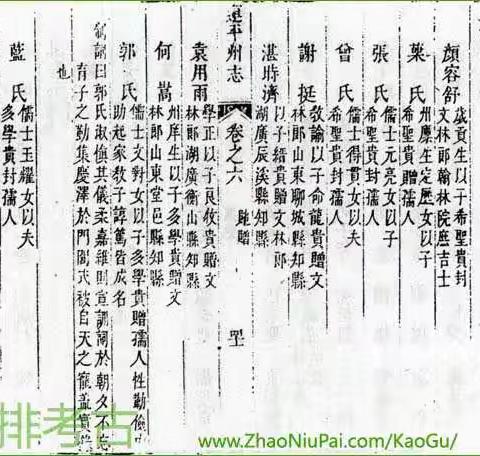 顏容舒
歲貢生以子希聖貴封
文林郎翰林院庶吉士
梁氏
州廩生定歷女以子
希聖貴贈孺人
張氏
儒士元亮女以子
希聖貴封孺人
曾氏
儒士得貫女以子
希聖貴封孺人
謝挺
教諭以子命龍貴贈文
林郎山東聊城縣知縣
湛時濟
以子縉貴贈文林郎
湖廣辰溪縣知縣
連平州志
卷之六
貤贈
袁用雨
學正以子良攸貴贈文
林郎湖廣衡山縣知縣
何嵩
州庠生以子多學貴贈文
林郎山東堂邑縣知縣
郭氏
儒士文對女以子多學貴贈孺人性勤儉
助起家教子諄篤皆成名
制詞曰郭氏淑慎其儀柔嘉維則宣訓於朝夕不忘
育子之勤集慶澤於門閭式被自天之寵
也
藍氏
儒士玉耀女以夫
多學貴封孺人
排考古
www.ZhaoNiuPai.com/KaoGu/